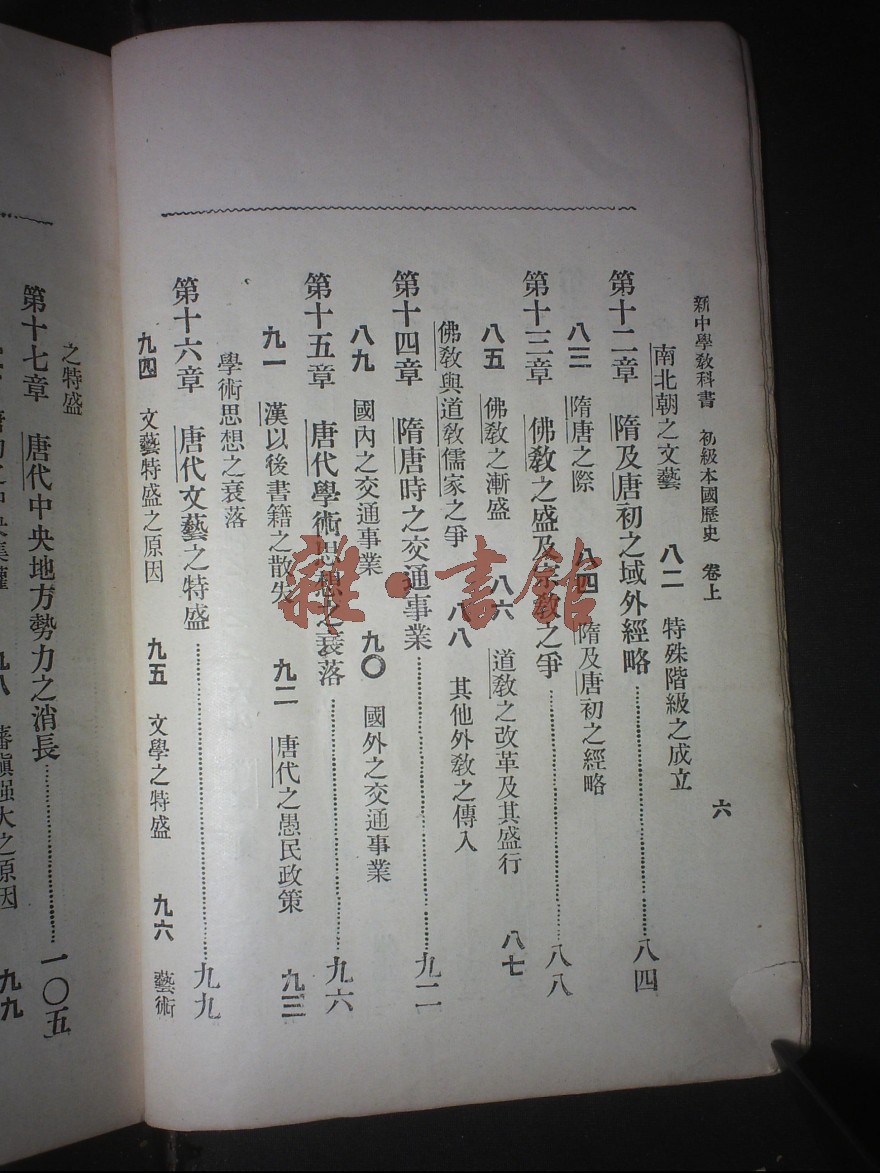 新中學教科書 初級本國歷史 卷上 六
南北朝之文藝 八二 特殊階級之成立
第十二章 隋及唐初之域外經略……八四
八三 隋唐之際 八四 隋及唐初之經略
第十三章 佛教之盛及宗教之爭……八八
八五 佛教之漸盛 八六 道教之改革及其盛行 八七
佛教與道教儒家之爭 八八 其他外教之傳入
第十四章 隋唐時之交通事業……九二
八九 國內之交通事業 九〇 國外之交通事業
第十五章 唐代學術思想之衰落……九六
九一 漢以後書籍之散失 九二 唐代之愚民政策 九三
學術思想之衰落
第十六章 唐代文藝之特盛……九九
九四 文藝特盛之原因 九五 文學之特盛 九六 藝術
之特盛
第十七章 唐代中央地方勢力之消長……一〇五
中央集權 九八 藩鎮强大之原因 九九
雜·書館